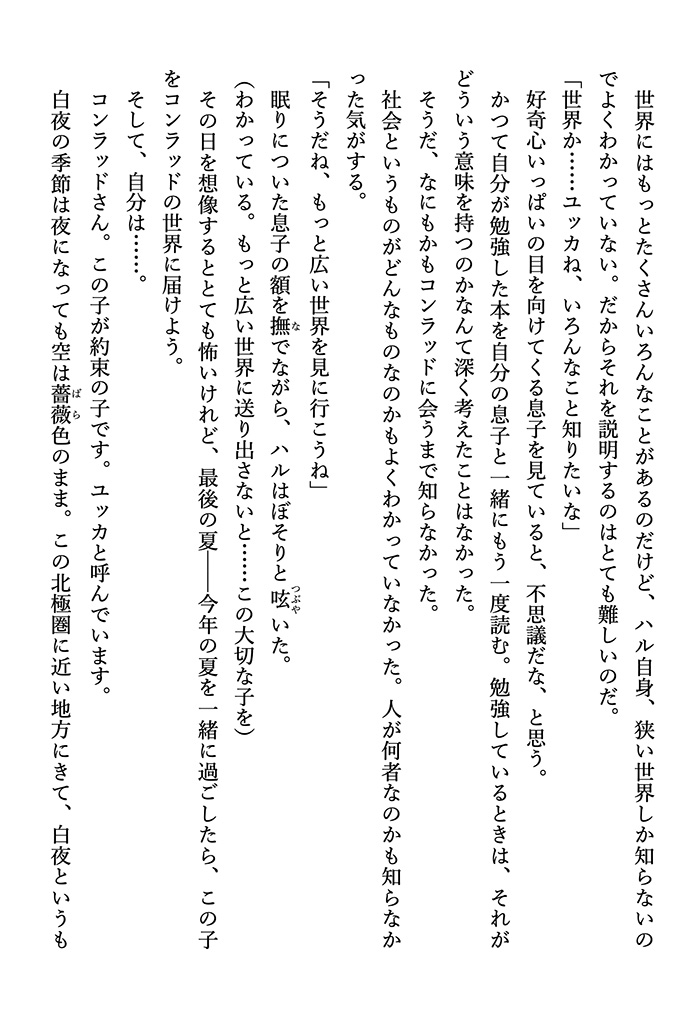 世界にはもっとたくさんいろんなことがあるのだけど、ハル自身、狭い世界しか知らないの
でよくわかっていない。だからそれを説明するのはとても難しいのだ。
「世界か……ユッカね、いろんなこと知りたいな」
好奇心いっぱいの目を向けてくる息子を見ていると、不思議だな、と思う。
かつて自分が勉強した本を自分の息子と一緒にもう一度読む。勉強しているときは、それが
どういう意味を持つのかなんて深く考えたことはなかった。
そうだ、なにもかもコンラッドに会うまで知らなかった。
社会というものがどんなものなのかもよくわかっていなかった。人が何者なのかも知らなか
った気がする。
「そうだね、もっと広い世界を見に行こうね」
眠りについた息子の額を撫でながら、ハルはぼそりと呟いた。
(わかっている。もっと広い世界に送り出さないと……この大切な子を)
その日を想像するととても怖いけれど、最後の夏――今年の夏を一緒に過ごしたら、この子
をコンラッドの世界に届けよう。
そして、自分は……。
コンラッドさん。この子が約束の子です。ユッカと呼んでいます。
白夜の季節は夜になっても空は薔薇色のまま。この北極圏に近い地方にきて、白夜というも